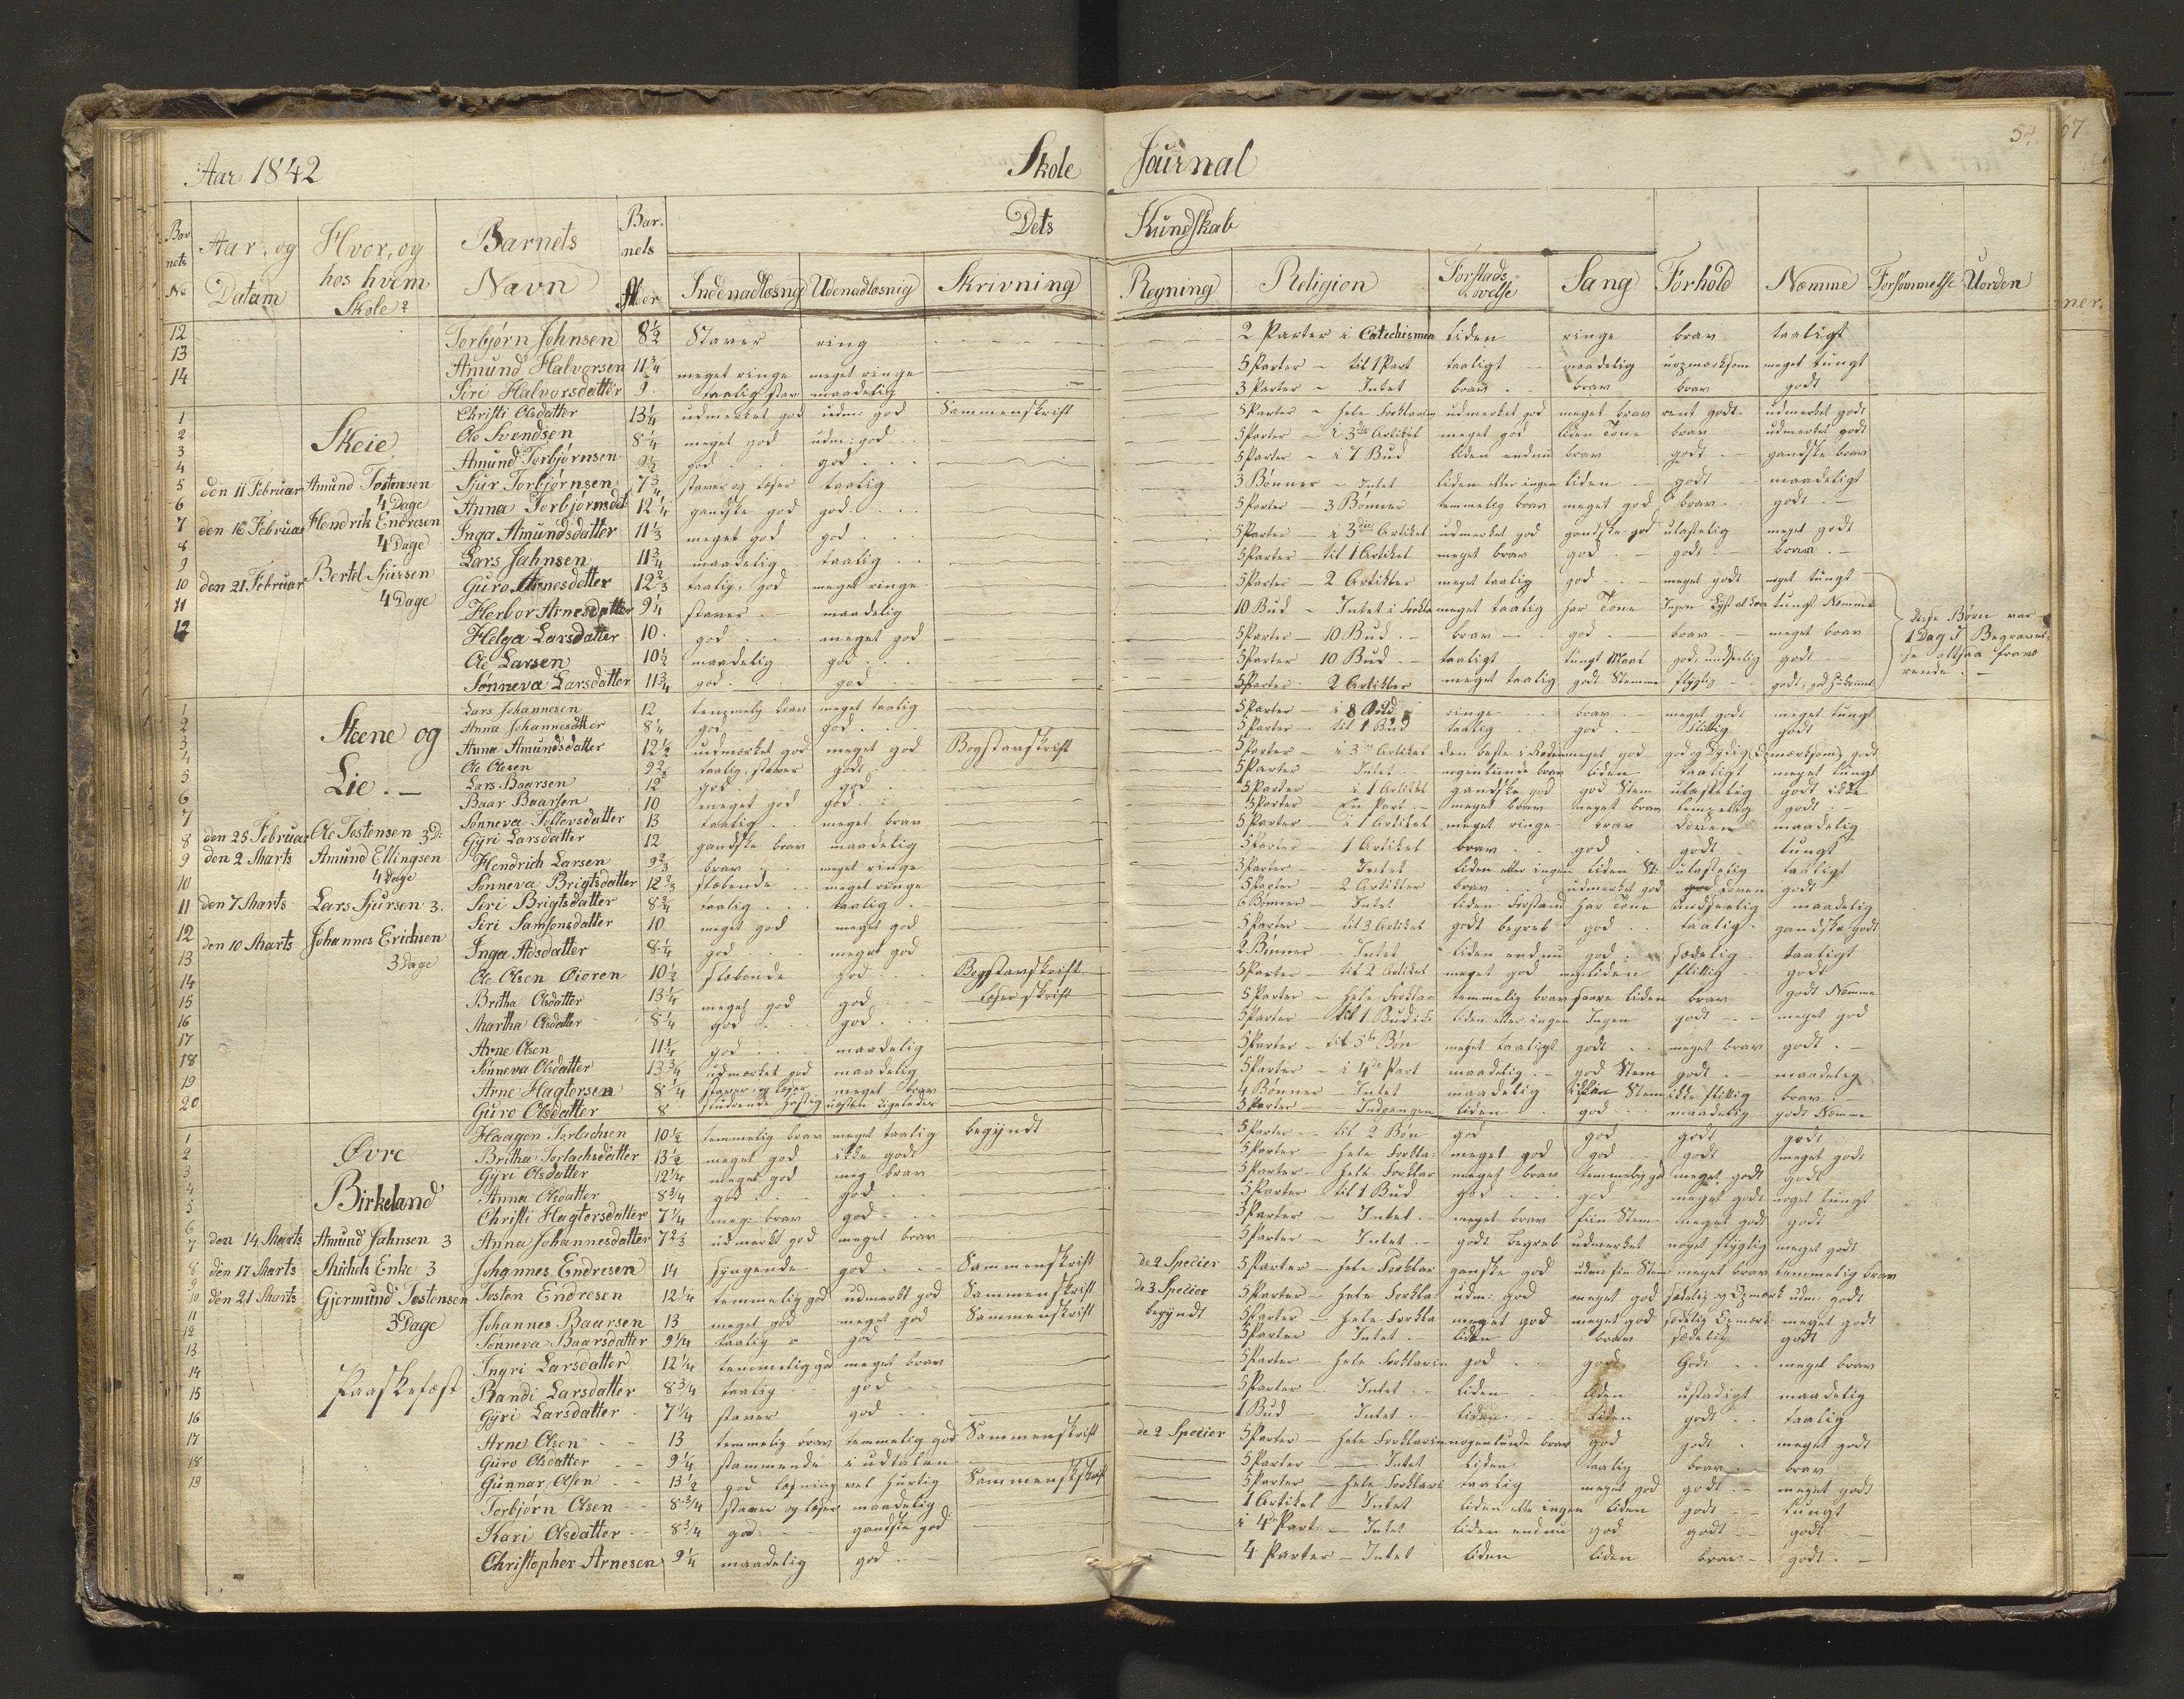 Aar 1842 Skole Journal 54. 67
Dets Kundskab
Bar nets No Aar, og Datum Hvor, og hos hvem Skole? Barnets Navn Bar. nets Alder Indenadlæsnig Udenadlæsnig Skrivning Regning Religion Forstads øvelse Sang Forhold Nemme Forsømmelse Uorden
12 Torbjørn Johnsen 8½ Staver ring 2 Parter i Catechismen liden ringe brav taaligt
13 Amund Halvorsen 11¾ meget ringe meget ringe 5 Parter - til 1 Part taaligt maadelig uopmærksom meget tungt
14 Siri Halvorsdatter 9 taalig stav maadelig 3 Parter - Intet brav brav brav godt
1 Christi Olsdatter 13¼ udmerket god udm: god Sammenskrift 5 Parter - hele Forklarin udmerket god meget brav rent godt udmerket godt
2 Skeie Ole Svendsen 8¼ meget god udm: god 5 Parter - i 3die Artikel meget god liden Tone brav udmerket godt
3 Amund Torbjørnsen 9½ god god 5 Parter - i 7 Bud liden endnu brav godt gandske brav
4 den 11 Februar Amund Tostensen Sjur Torbjørnsen 7¾ staver og læser taalig 3 Bønner - Intet liden eller ingen liden godt maadeligt
5 4 Dage Anna Torbjørnsdat: 12¼ gandske god god 5 Parter - 3 Bønner temmelig brav meget god brav godt
6 den 16 Februar Hendrik Endresen Inga Amundsdatter 11⅓ meget god god 5 Parter - i 3die Artikel udmerket god gandske god ulastelig meget godt
7 4 Dage Lars Jahnsen 11¾ maadelig taalig 5 Parter - til 1 Artikel meget brav god godt brav
8 den 21 Februar Bertel Sjursen Guro Arnesdatter 12⅔ taalig, god meget ringe 5 Parter - 2 Artikler meget taalig god meget godt meget tungt
9 4 Dage Herbor Arnesdatter 9¼ staver maadelig 10 Bud - Intet i Forkla meget taalig har Tone Ingen Lyst at lære tungt Nemme
10 Helga Larsdatter 10 god meget god 5 Parter - 10 Bud brav god brav meget brav
11 Ole Larsen 10½ maadelig god 5 Parter 10 Bud taaligt tungt Maal god, undseelig godt
12 Sønneva Larsdatter 11¾ god god 5 Parter 2 Artikler meget taalig godt Stemme flygtig godt
disse Børn var 1 Dag I Begravel= se altsaa fravæ rende
1 Lars Johannesen 12 temmelig brav meget taalig 5 Parter - i 8 Bud ringe brav meget godt meget tungt
2 Steene og Anna Johannesdatter 8¼ god god 5 Parter til 1 Bud taalig god flittig godt
3 Anna Amundsdatter 12½ udmerket god meget god Bogstavskrift 5 Parter - i 3die Artikel den beste i Roden meget god god og Lydig Opmærksom godt
4 Ole Olesen 9⅔ taalig, staver godt 5 Parter - Intet nogenlunde brav liden taaligt meget tungt
5 Lie Lars Baarsen 12 god god 5 Parter - i 1 Artikel gandske god god Stem ulastelig godt
6 Baar Baarsen 10 meget god god 5 Parter En Part meget brav meget brav temmelig godt
7 Sønneva Tollevsdatter 13 taalig meget brav 5 Parter - i 1 Artikel meget ringe brav doven maadelig
8 den 25 Februar Ole Tostensen 3 D: Gÿri Larsdatter 12 gandske brav maadelig 5 Parter - 1 Artikel brav god godt tungt
9 den 2 Marts Amund Ellingsen Hendrich Larsen 9⅔ brav meget ringe 3 Parter Intet liden eller ingen liden St: ulastelig taaligt
10 4 Dage Sønneva Brigtsdatter 12⅔ slæbende meget ringe 5 Parter - 2 Artikler brav udmerket god doven godt
11 den 7 Marts Lars Sjursen 3. Siri Brigtsdatter 8¾ taalig taalig 6 Bønner - Intet liden Forstand har Tone undseelig maadelig
12 Siri Samsonsdatter 10 meget god meget god 5 Parter - til 3 Artikel godt begreb god taalig gandske godt
13 den 10 Marts Johannes Erichsen Inga Adsdatter 8¼ god meget god 2 Bønner - Intet liden endnu god sædelig taaligt
14 3 Dage Ole Olsen Øioren 10½ slæbende god Bogstavskrift 5 Parter - til 2 Artikel meget god meg: liden flittig godt
15 Britha Olsdatter 13¼ meget god god Løserskrift 5 Parter - hele Forklar temmelig brav saare liden brav godt Nemme
16 Martha Olsdatter 8¼ god god 5 Parter - til 1 Bud liden eller ingen Ingen godt meget god
17 Arne Olsen 11¼ god maadelig 5 Parter - til 5te Bøn meget taaligt godt meget brav godt
18 Sønneva Olsdatter 13¾ udmerket god maadelig 5 Parter - i 4de Part maadelig god Stem godt maadeleg
19 Arne Hagtorsen 8¼ staver og læser meget brav 4 Bønner - Intet maadelig Stem ikke flittig brav
20 Guro Olsdatter 8 3 Parter - Indgangen liden god maadelig godt Nemme
1 Haagen Torlachsen 10½ temmelig brav meget taalig begÿndt 5 Parter - til 2 Bøn god god godt godt
2 Øvre Britha Torlachsdatter 13½ meget god ikke godt 5 Parter - hele Forkla: meget god god godt meget godt
3 Gÿri Olsdatter 12¼ meget god meg brav 5 Parter - hele Forklar meget brav temmelig god meget godt godt
4 Birkeland Anna Olsdatter 8¾ god god 5 Parter til 1 Bud god god meget godt noget tungt
5 Christi Hagtorsdatter 7¼ meg: brav god 3 Parter - Intet meget brav fiin Stem meget godt godt
6 den 14 Marts Amund Jahnsen 3 Anna Johannesdatter 7⅔ udmerkt god meget brav 5 Parter - Intet godt begreb udmerket noget flygtig meget godt
7
8 den 17 Marts Michels Enke 3 Johannes Endresen 14 syngende god Sammenskrift de 2 Specier 5 Parter - hele Forklar ganske god uden fin Stem meget brav temmelig brav
9
10 den 21 Marts Gjermund Tostensen Tosten Endresen 12¼ temmelig god udmerkt god Sammenskrift de 3 Specier 5 Parter - hele Forkla: udm: god meget god sædelig og Opmærk udm: godt
11 3 Dage Johannes Baarsen 13 meget god meget god Sammenskrift begyndt 5 Parter - hele Forkla meget god meget god sædelig Opmærk: meget godt
12 Sønneva Baarsdatter 9¼ taalig god 5 Parter Intet liden brav sædelig godt
13 Ingri Larsdatter 12¼ temmelig god meget brav 5 Parter - hele Forklarin god godt Godt meget brav
14 Paaskefæst Randi Larsdatter 8¾ taalig god 5 Parter - Intet liden liden ustadigt maadelig
15 Gÿri Larsdatter 7¼ staver god 1 Bud Intet liden liden godt taalig
16 Arne Olsen 13 temmelig brav temmelig god Sammenskrift de 2 Specier 5 Parter - hele Forklarin nogenlunde brav god godt meget godt
17 Guro Olsdatter 9¼ stammende i udtalen 5 Parter - Intet liden taalig brav brav
18 Gunnar Olsen 13½ god læsning vel hurtig Sammenskrift 5 Parter - hele Forklari taalig meget god godt meget godt
19 Torbjørn Olsen 8¾ staver og læser maadelig 1 Artikel - Intet liden elle ingen liden godt tungt
Kari Olsdatter 8¾ god gandske god i 4de Part - Intet liden endnu god godt godt
Christopher Arnesen 9¼ maadelig god 4 Parter - Intet liden liden brav godt